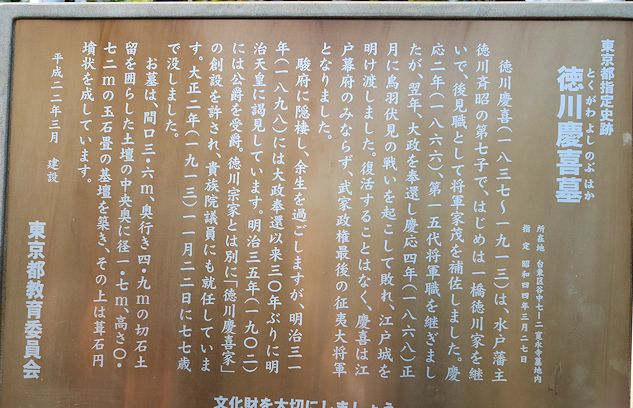 東京都指定史跡
徳川慶喜墓
とくがわよしのぶ はか
所在地 台東区谷中七－二 寛永寺墓地内
指定 昭和四四年三月二七日
徳川慶喜(一八三七〜一九一三)は、水戸藩主
徳川斉昭の第七子で、はじめは一橋徳川家を継
いで、後見職として将軍家茂を補佐しました。慶
応二年(一八六六)、第一五代将軍職を継ぎまし
たが、翌年、大政を奉還し慶応四年(一八六八)正
月に鳥羽伏見の戦いを起こして敗れ、江戸城を
明け渡しました。復活することはなく、慶喜は江
戸幕府のみならず、武家政権最後の征夷大将軍
となりました。
駿府に隠棲し、余生を過ごしますが、明治三一
年(一八九八)には大政奉還以来三〇年ぶりに明
治天皇に謁見しています。明治三五年(一九〇二)
には公爵を受爵。徳川宗家とは別に「徳川慶喜家」
の創設を許され、貴族院議員にも就任していま
す。大正二年(一九一三)一一月二二日に七七歳
で没しました。
お墓は、間口三・六m、奥行き四・九mの切石土
留を囲らした土壇の中央奥に径一・七m、高さ〇・
七二mの玉石畳の基壇を築き、その上は葺石円
墳状を成しています。
平成二二年三月 建設
東京都教育委員会
文化財を大切にしましょう